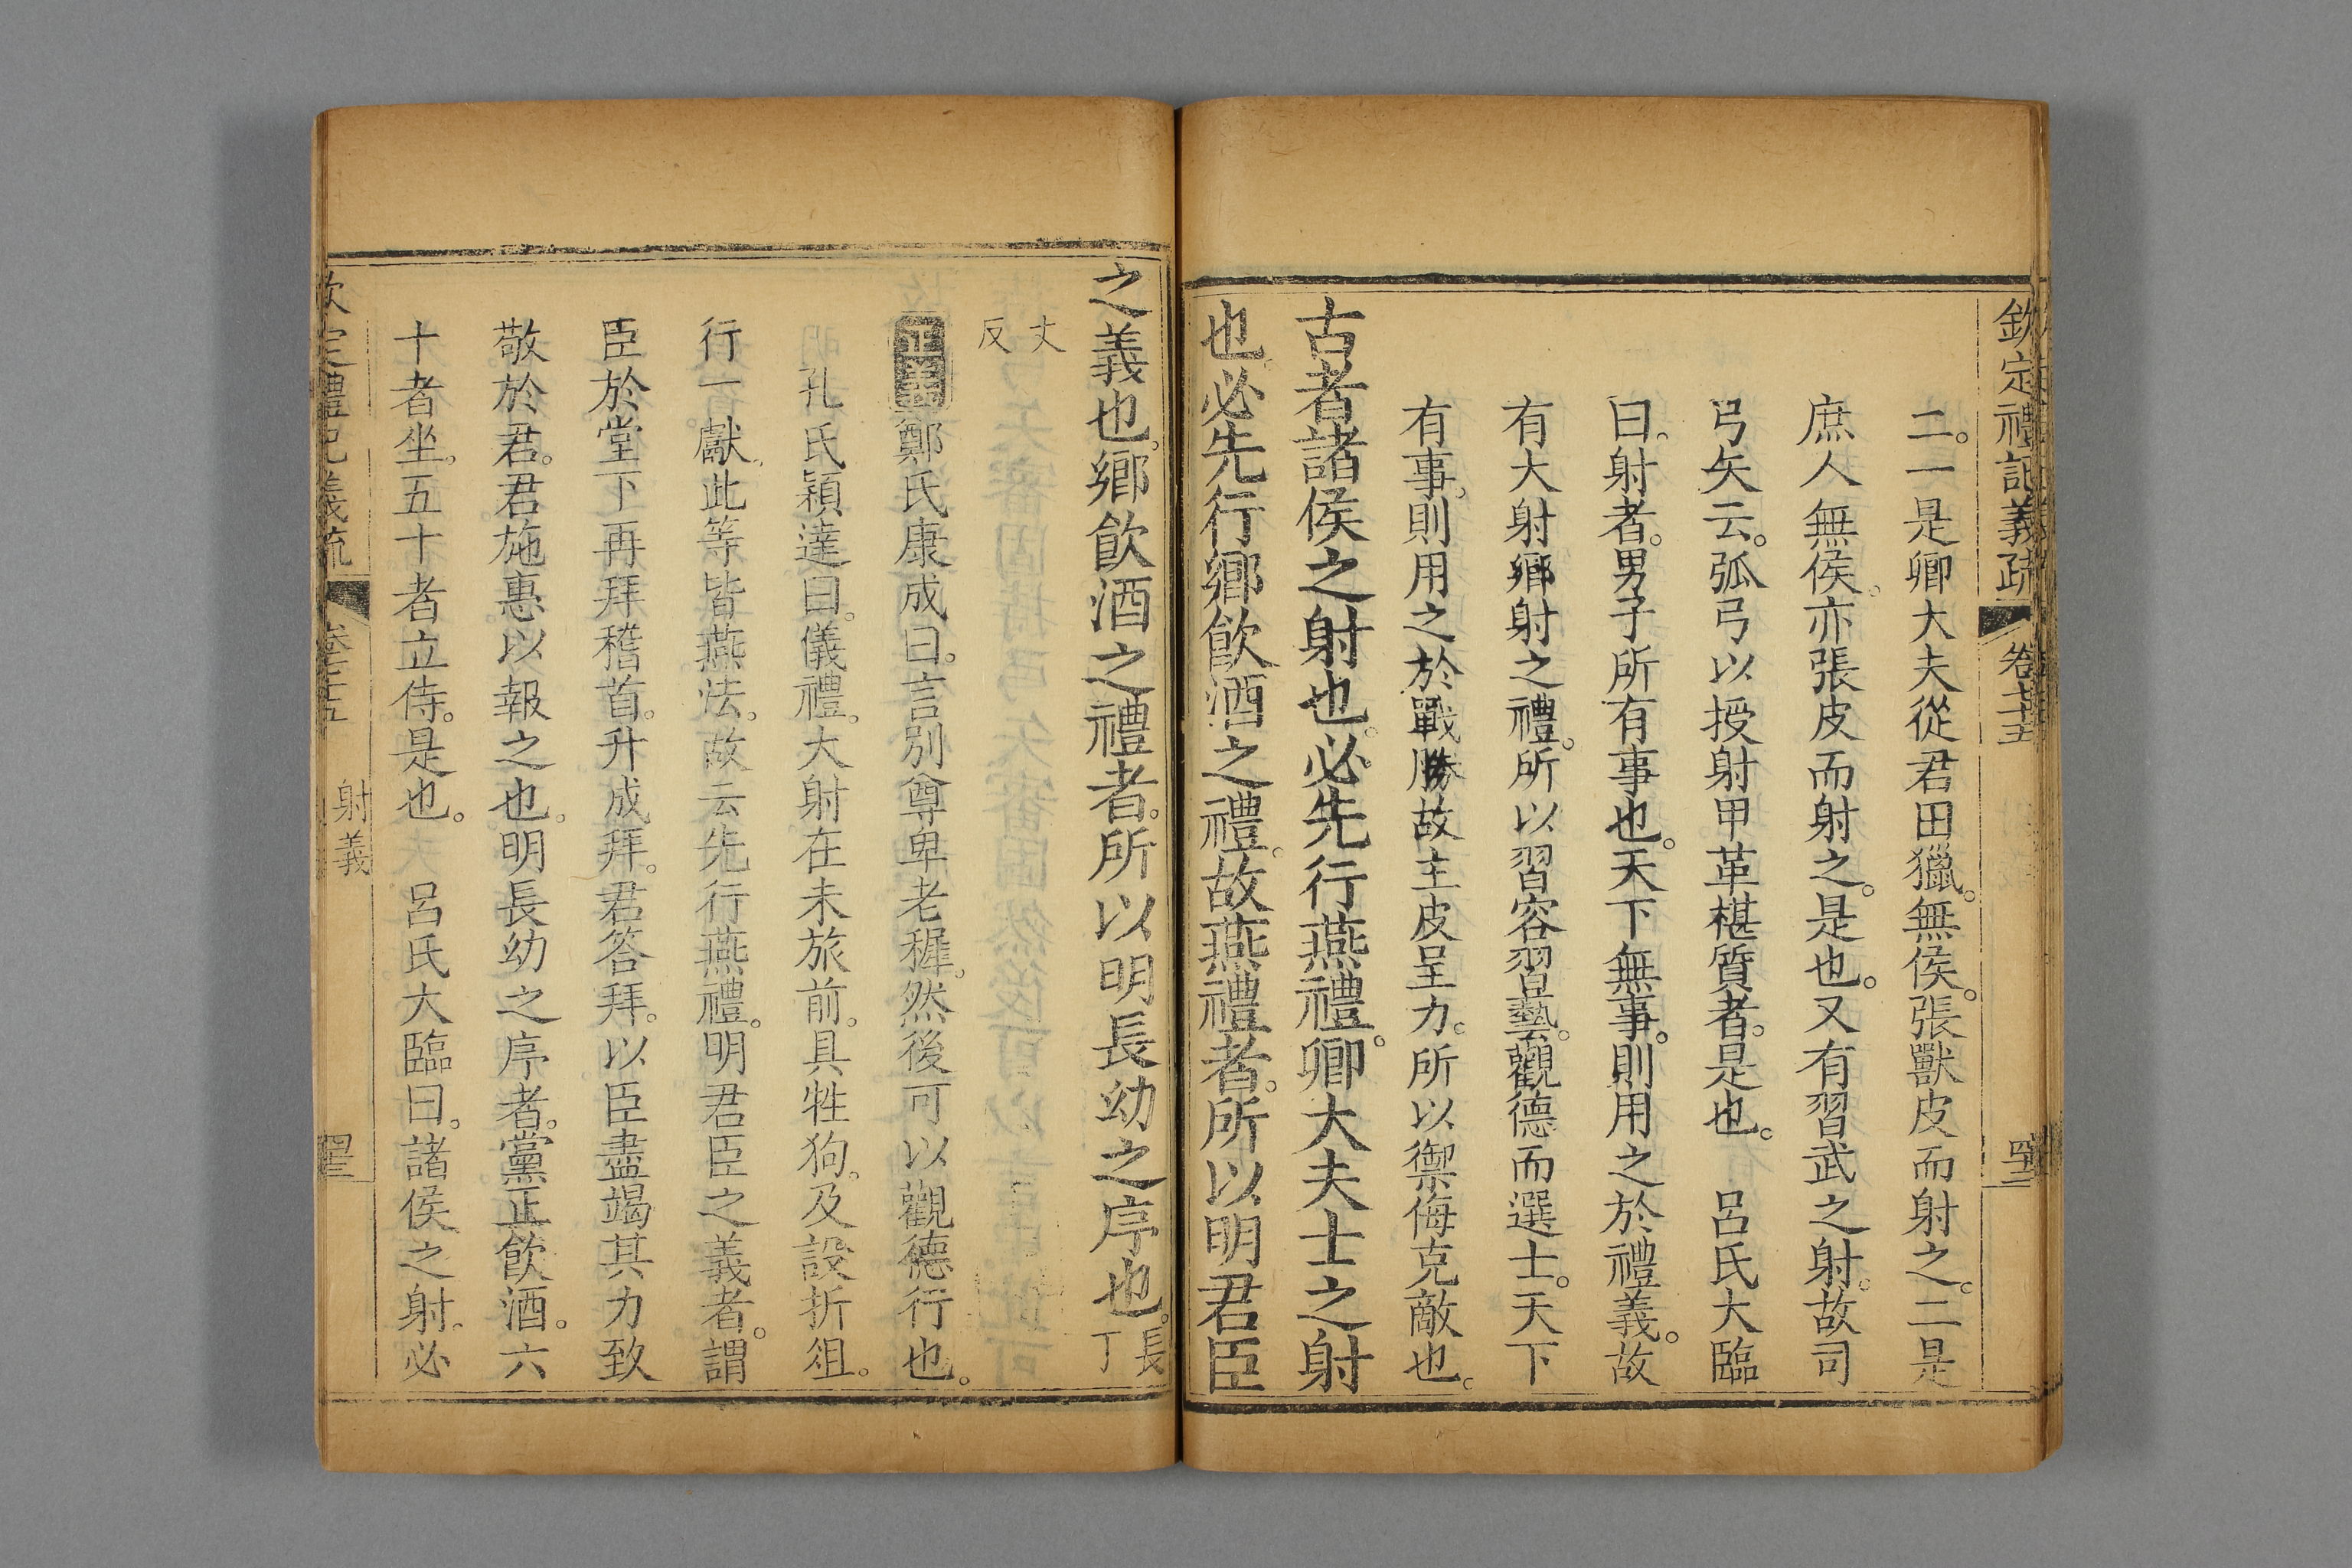 欽定禮記義疏 卷七十五
二。一是卿大夫從君田獵。無侯。張獸皮而射之。二是
庶人無侯。亦張皮而射之。是也。又有習武之射。故司
弓矢云。弧弓以授射甲革椹質者。是也。 呂氏大臨
曰。射者。男子所有事也。天下無事。則用之於禮義。故
有大射鄉射之禮。所以習容習藝。觀德而選士。天下
有事。則用之於戰勝。故主皮呈力。所以禦侮克敵也。
古者諸侯之射也。必先行燕禮。卿大夫士之射
也。必先行鄉飲酒之禮。故燕禮者。所以明君臣
之義也。鄉飲酒之禮者。所以明長幼之序也。長丁
丈反
正義 鄭氏康成曰。言別尊卑老穉。然後可以觀德行也。
孔氏穎達曰。儀禮。大射在未旅前。具牲狗。及設折俎。
行一獻。此等皆燕法。故云先行燕禮。明君臣之義者。謂
臣於堂下再拜稽首。升成拜。君答拜。以臣盡竭其力致
敬於君。君施惠以報之也。明長幼之序者。黨正飲酒。六
十者坐。五十者立侍。是也。 呂氏大臨曰。諸侯之射。必
欽定禮記義疏 卷七十五 射義